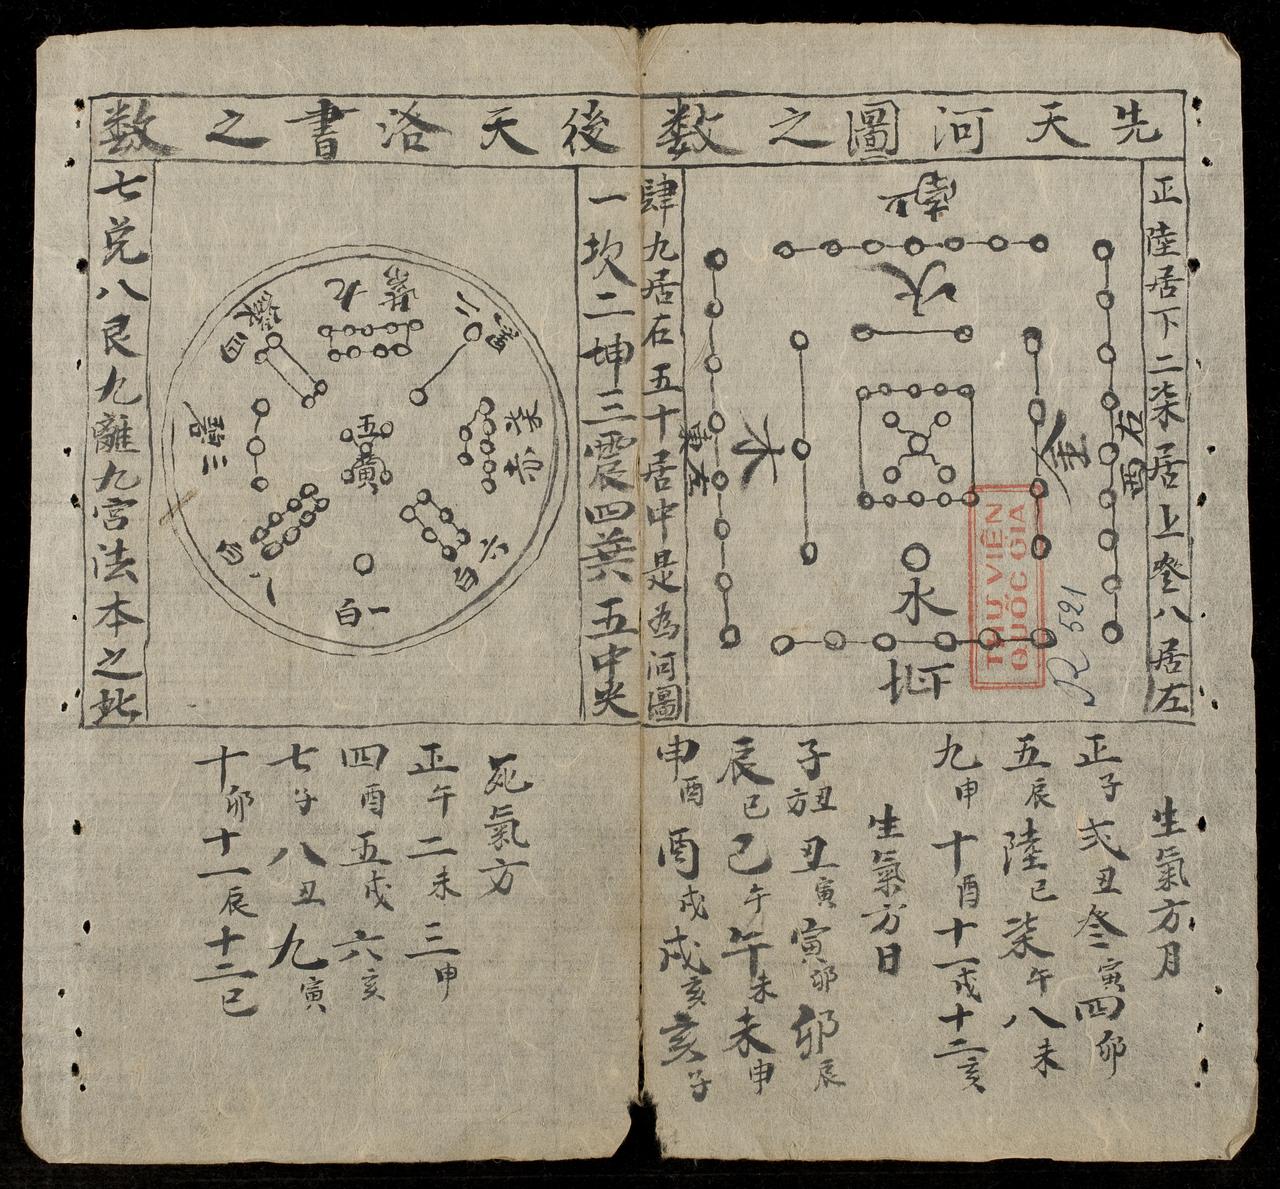 先天河圖之数
正陸居下二柒居上叄八居左
肆九居右五十居中是為河圖
南正
火
木
東左
金
右西
水
北下
THƯ VIỆN
QUỐC GIA
R 521
後天洛書之数
一坎二坤三震四巽五中央
七兌八艮九離九宮法本之此
九紫
二黑
四綠
三碧
五黃
柒赤
八白
六白
一白
生氣方月
正子弍丑叄寅四卯
五辰陸巳柒午八未
九申十酉十一戌十二亥
生氣方日
子方丑丑寅寅卯卯辰
辰巳巳午午未未申
申酉酉戌戌亥亥子
死氣方
正午二未三申
四酉五戌六亥
七子八丑九寅
十卯十一辰十二巳